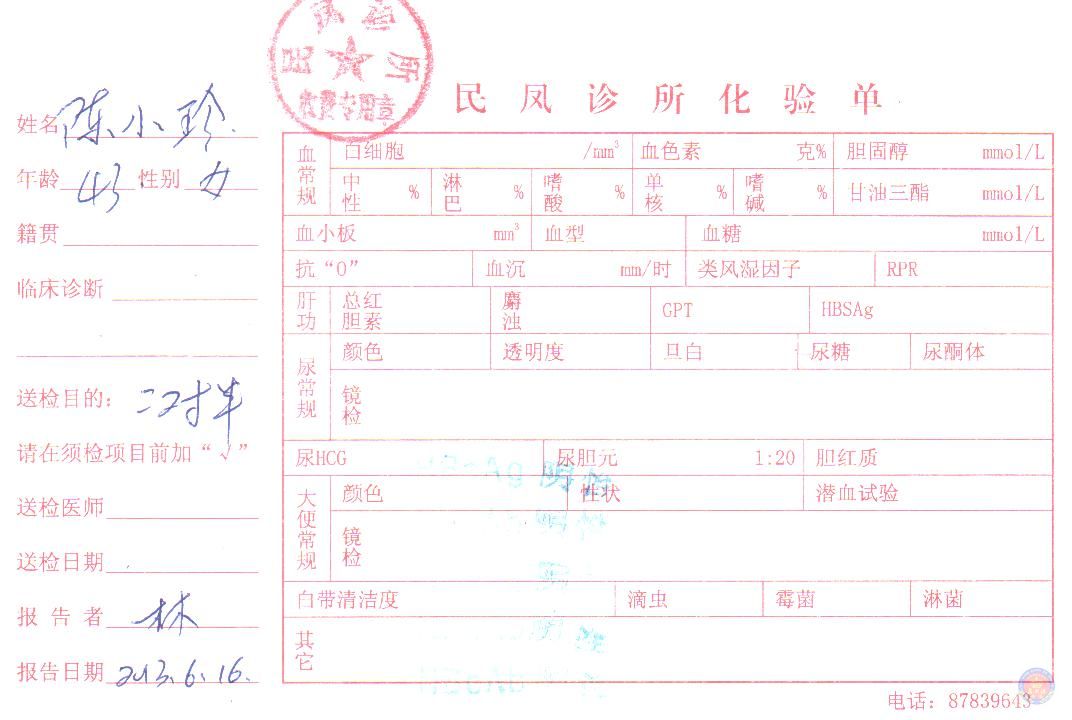 民凤诊所化验单
收费专用章
姓名 陈小玲
年龄 43 性别 女
籍贯
临床诊断
送检目的: 二对半
请在须检项目前加“√”
送检医师
送检日期
报告者 林
报告日期 2013.6.16.
血常规 白细胞 /mm³ 血色素 克% 胆固醇 mmol/L
中性 % 淋巴 % 嗜酸 % 单核 % 嗜碱 % 甘油三酯 mmol/L
血小板 mm³ 血型 血糖 mmol/L
抗“O” 血沉 mm/时 类风湿因子 RPR
肝功 总红胆素 麝浊 GPT HBSAg
尿常规 颜色 透明度 旦白 尿糖 尿酮体
镜检
尿HCG 尿胆元 1:20 胆红质
HBsAg 阴性
大便常规 颜色 性状 潜血试验
镜检
白带清洁度 滴虫 霉菌 淋菌
其它
HBcAb
电话: 87839643